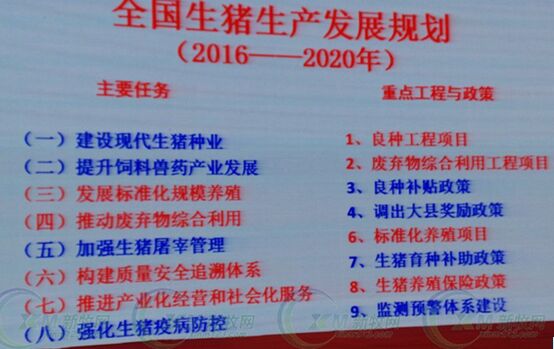 全国生猪生产发展规划
（2016——2020年）
主要任务
（一）建设现代生猪种业
（二）提升饲料兽药产业发展
（三）发展标准化规模养殖
（四）推动废弃物综合利用
（五）加强生猪屠宰管理
（六）构建质量安全追溯体系
（七）推进产业化经营和社会化服务
（八）强化生猪疫病防控
重点工程与政策
1、良种工程项目
2、废弃物综合利用工程项目
3、良种补贴政策
4、调出大县奖励政策
6、标准化养殖项目
7、生猪育种补助政策
8、生猪养殖保险政策
9、监测预警体系建设
新牧网
新牧网
新牧网